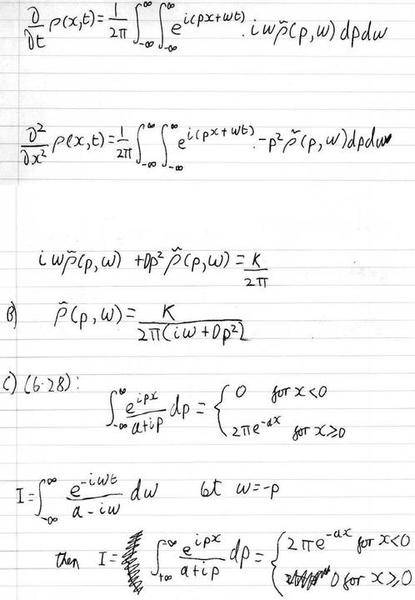 ∂/∂t ρ(x,t) = 1/2π ∫_{-∞}^{∞} ∫_{-∞}^{∞} e^{i(px+wt)} · i w ρ̃(p,w) dp dw
∂²/∂x² ρ(x,t) = 1/2π ∫_{-∞}^{∞} ∫_{-∞}^{∞} e^{i(px+wt)} · -p² ρ̃(p,w) dp dw
i w ρ̃(p,w) + Dp² ρ̃(p,w) = K/2π
B) ρ̃(p,w) = K/2π(iw + Dp²)
C) (6.28):
∫_{-∞}^{∞} e^{ipx}/a+ip dp = { 0 for x<0
2πe^{-ax} for x≥0
I = ∫_{-∞}^{∞} e^{-iwt}/a-iw dw let w=-p
then I = ∫_{+∞}^{-∞} e^{ipx}/a+ip dp = { 2πe^{-ax} for x<0
0 for x≥0